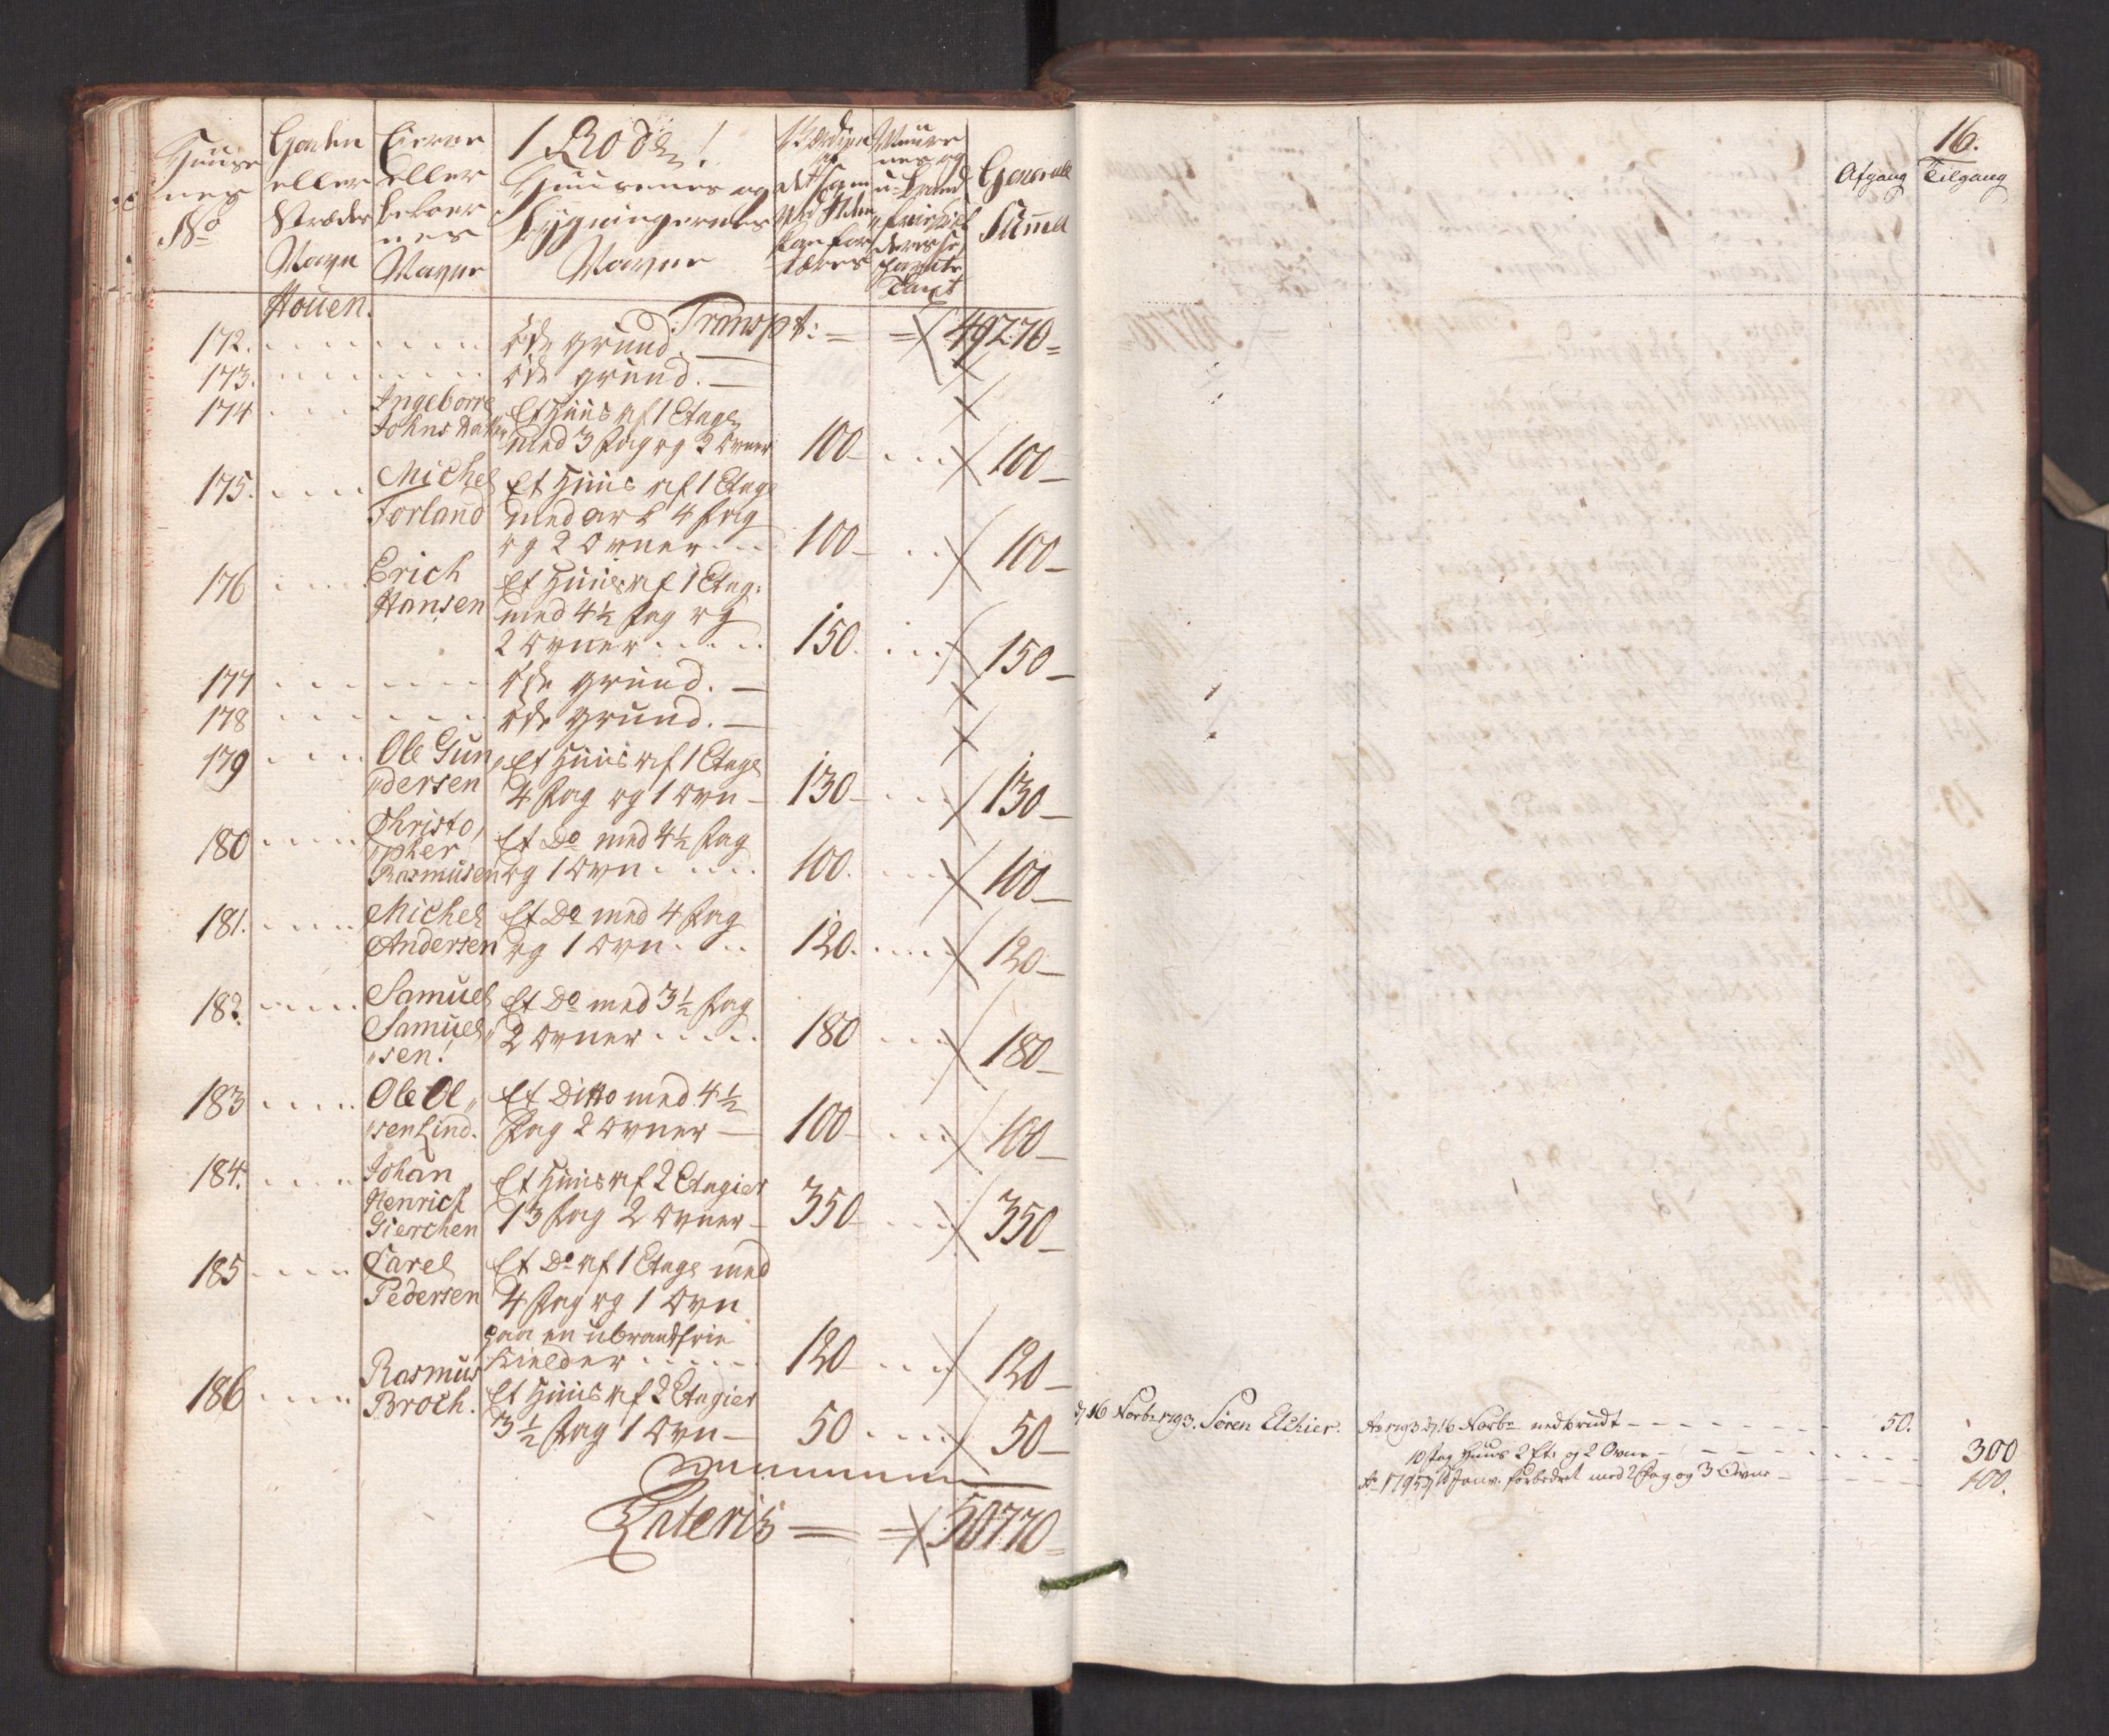 Huuse
nes
No
Gaden
eller
Stræder
Navn
Eierne
eller
beboer
nes
Navne
1 Rode!
Huusenes og
Bygningernes
Navne
Værdien
af
det som
ved Ilden
kan for
tæres
Muure
nes og
u-brand
frie
deres se
parate
Taxt
Generale
Suma
Houen.
Transpt: = = 49270=
172. Øde grund. —
173. Øde grund. —
174 Ingeborre Et Huus af 1 Etage
Johns datter med 3 fag og 2 Ovner 100– 100–
175. Michel Et Huus af 1 Etage
Forland med ark 4 fag
og 2 Ovner 100– 100–
176 Erich Et Huus af 1 Etag:
Hansen med 4½ fag og
2 Ovner 150. 150–
177 Øde grund. —
178 Øde grund. —
179 Ole Gun„ Et Huus af 1 Etage
„dersen 4 fag og 1 Ovn – 130– 130–
180 Christo, Et Do med 4½ fag
„pher
Rasmusen og 1 Ovn 100. 100–
181. Michel Et Do med 4 fag
Andersen og 1 Ovn 120. 120–
182. Samuel Et Do med 3½ fag
Samuel„ 2 Ovner 180 180–
„sen!
183 Ole Ol„ Et Ditto med 4½
„sen Lind. fag 2 Ovner — 100– 100–
184. Johan Et Huus af 2 Etagier
Henrich 13 fag 2 Ovner – 350– 350–
Gierchen
185 Carel Et Do af 1 Etage med
Pedersen 4 fag og 1 Ovn
paa en ubrandfrie
Kielder 120– 120–
186 Rasmus Et Huus af 2 Etagier
Broch. 3½ fag 1 Ovn – 50 50–
Lateris = = 50770=
16.
Afgang Tilgang
d 16 Novbr 1793. Søren Elchier. Ao 1793 d 16 Novbr nedbrudt 50.
10 fag Huus 2 Et: og 2 Ovne 300
Ao 1795 d Janv. forbedret med 2 fag og 3 Ovne 100.